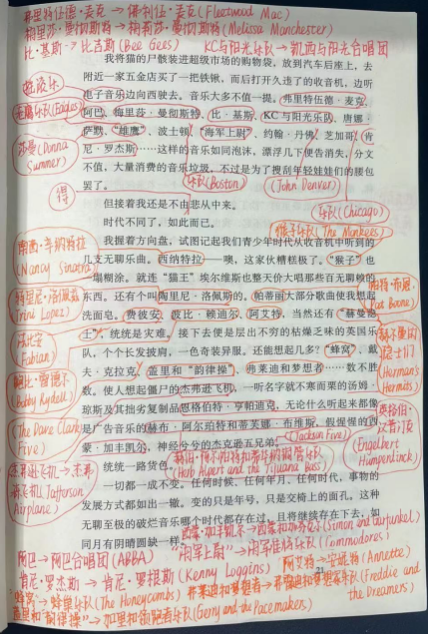 弗里特伍德·麦克 → 佛利伍·麦克(Fleetwood Mac)
梅里莎·曼彻斯特 → 梅莉莎·曼彻斯特(Melissa Manchester)
比·基斯 → 比吉斯(Bee Gees) KC与阳光乐队 → 凯西与阳光合唱团
我将猫的尸骸装进超级市场的购物袋,放到汽车后座上,去
附近一家五金店买了一把铁锹,而后打开久违了的收音机,边听
电子音乐边向西驶去。音乐大多不值一提。弗里特伍德·麦克、
老鹰乐队(Eagles)
阿巴、梅里莎·曼彻斯特、比·基斯、KC与阳光乐队、唐娜·
莎曼(Donna Summer)
萨默、“雄鹰”、波士顿、“海军上尉”、约翰·丹佛、芝加哥、肯
尼·罗杰斯……这样的音乐如同泡沫,漂浮几下便告消失,分文
不值,大量消费的音乐垃圾,不过是为了搜刮年轻娃娃们的腰包
罢了。
得
乐队(Boston)
(John Denver)
乐队(Chicago)
但接着我还是不由悲从中来。
时代不同了,如此而已。
猴子乐队(The Monkees)
我握着方向盘,试图记起我们青少年时代从收音机中听到的
几支无聊乐曲。西纳特拉——噢,这家伙糟糕极了。“猴子”也
南西·辛纳特拉
(Nancy Sinatra)
一塌糊涂。就连“猫王”埃尔维斯也整天价大唱那些百无聊赖的
东西。还有个叫陶里尼·洛佩斯的。帕蒂丽大部分歌曲使我想起
(Trini Lopez)
(Pat Boone)
洗面皂。费彼安、波比·赖迪尔、阿艾特,当然还有“赫曼隐
士”,统统是灾难。接下去便是层出不穷的枯燥乏味的英国乐
(Fabian)
(Herman's Hermits)
队,个个长发披肩,一色奇装异服。还能想起几多?“蜂窝”、戴
夫·克拉克、盖里和“韵律操”、弗莱迪和梦想者……数不胜
(Bobby Rydell)
(The Dave Clark Five)
数。使人想起僵尸的杰弗逊飞机,一听名字就不寒而栗的汤姆·
琼斯及其拙劣复制品恩格伯特·亨帕迪克,无论什么听起来都像
(Engelbert Humperdinck)
是广告音乐的赫布·阿尔珀特和蒂芜娜·布维斯,假惺惺的西
蒙·加丰凯尔,神经兮兮的杰克逊五兄弟。
(Jackson Five)
(Jafferson Airplane)
统统一路货色。
(Herb Alpert and the Tijuana Brass)
一切都一成不变。任何时候、任何年月、任何时代,事物的
发展方式都如出一辙。变的只是年号,只是交椅上的面孔。这种
(Simon and Garfunkel)
无聊至极的破烂音乐哪个时代都存在过,且将继续存在下去,如
同月有阴晴圆缺一样。
(Commodores)
阿巴 → 阿巴合唱团(ABBA) 阿艾特 → 安妮特(Annette)
肯尼·罗杰斯 → 肯尼·罗根斯(Kenny Loggins)
(Freddie and the Dreamers)
“蜂窝” → 蜂巢乐队(The Honeycombs)
盖里和“韵律操” → (Gerry and the Pacemakers)